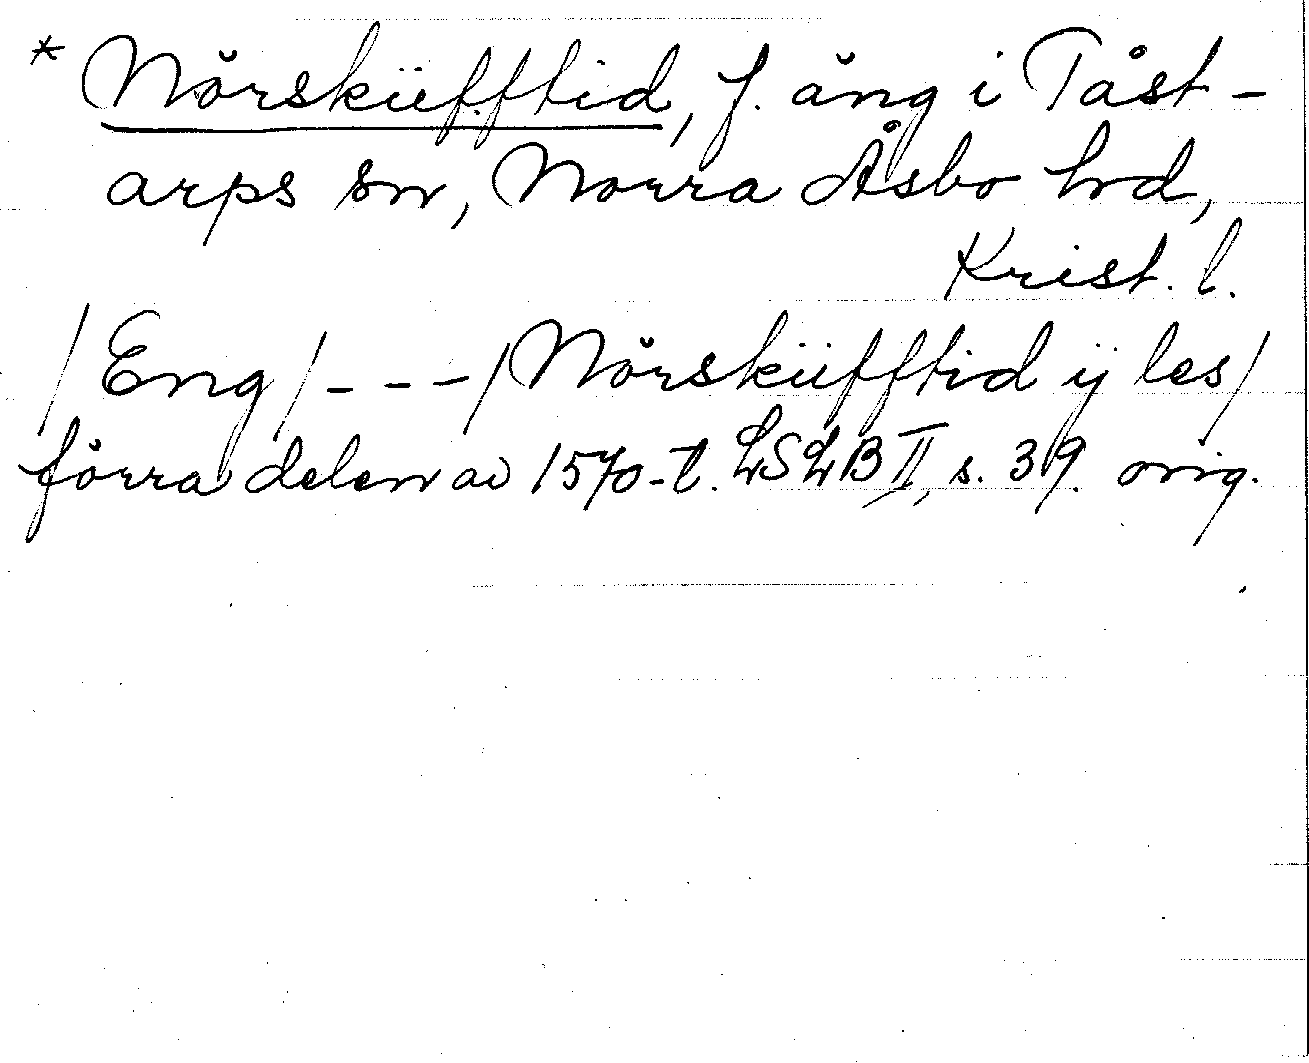 * Nörsküfftid, f. äng i Tåst-
arps sn, Norra Åsbo hd,
Krist. l.
/Eng/ - - - /Nörsküfftid ÿ les/
förra delen av 1570-t. LSLB II, s. 39. orig.